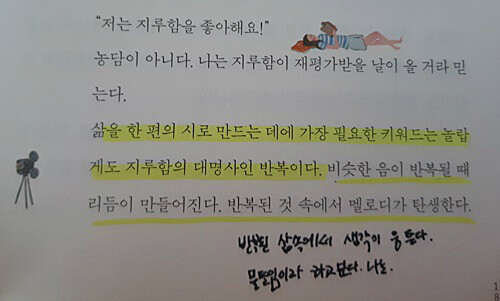 “저는 지루함을 좋아해요!”
농담이 아니다. 나는 지루함이 재평가받을 날이 올 거라 믿
는다.
삶을 한 편의 시로 만드는 데에 가장 필요한 키워드는 놀랍
게도 지루함의 대명사인 반복이다. 비슷한 음이 반복될 때
리듬이 만들어진다. 반복된 것 속에서 멜로디가 탄생한다.
반복된 삶속에서 생각이 움튼다.
물들임이라 라고한다. 나는.